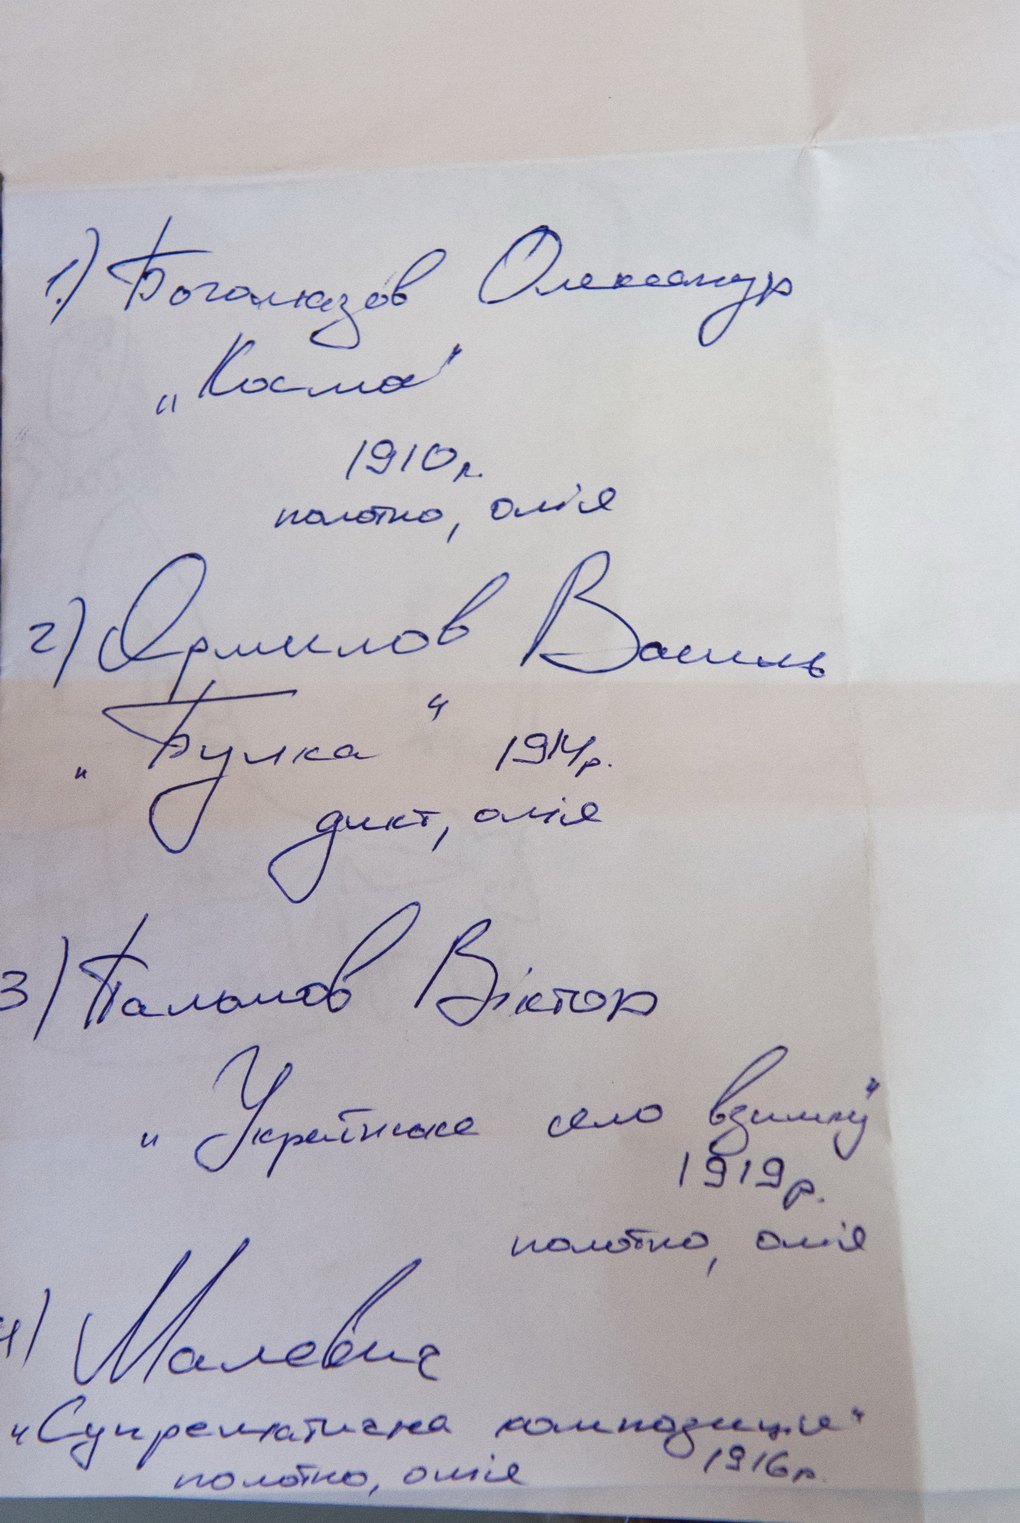 1.) Богомазов Олександр
„Космос"
1910 р.
полотно, олія
2) Єрмилов Василь
„Булка" 1914 р.
дикт, олія
3) Пальмов Віктор
„Українське село взимку"
1919 р.
полотно, олія
4) Малевич
"Супрематична композиція"
полотно, олія 1916 р.